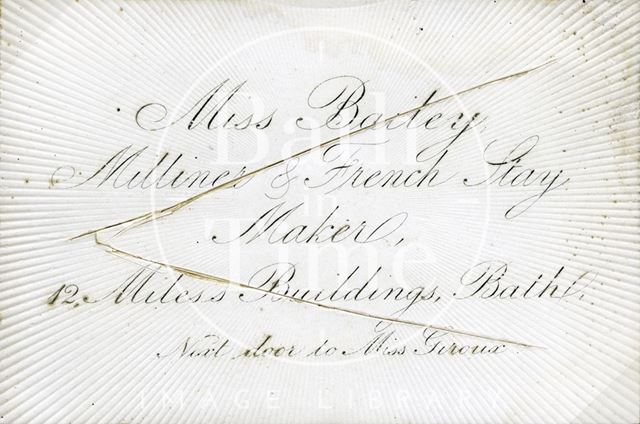 Miss Bailey,
Milliner & French Stay
Maker,
12, Miles's Buildings, Bath.
Next door to Miss Giroux.
Bath
in
Time
IMAGE LIBRARY